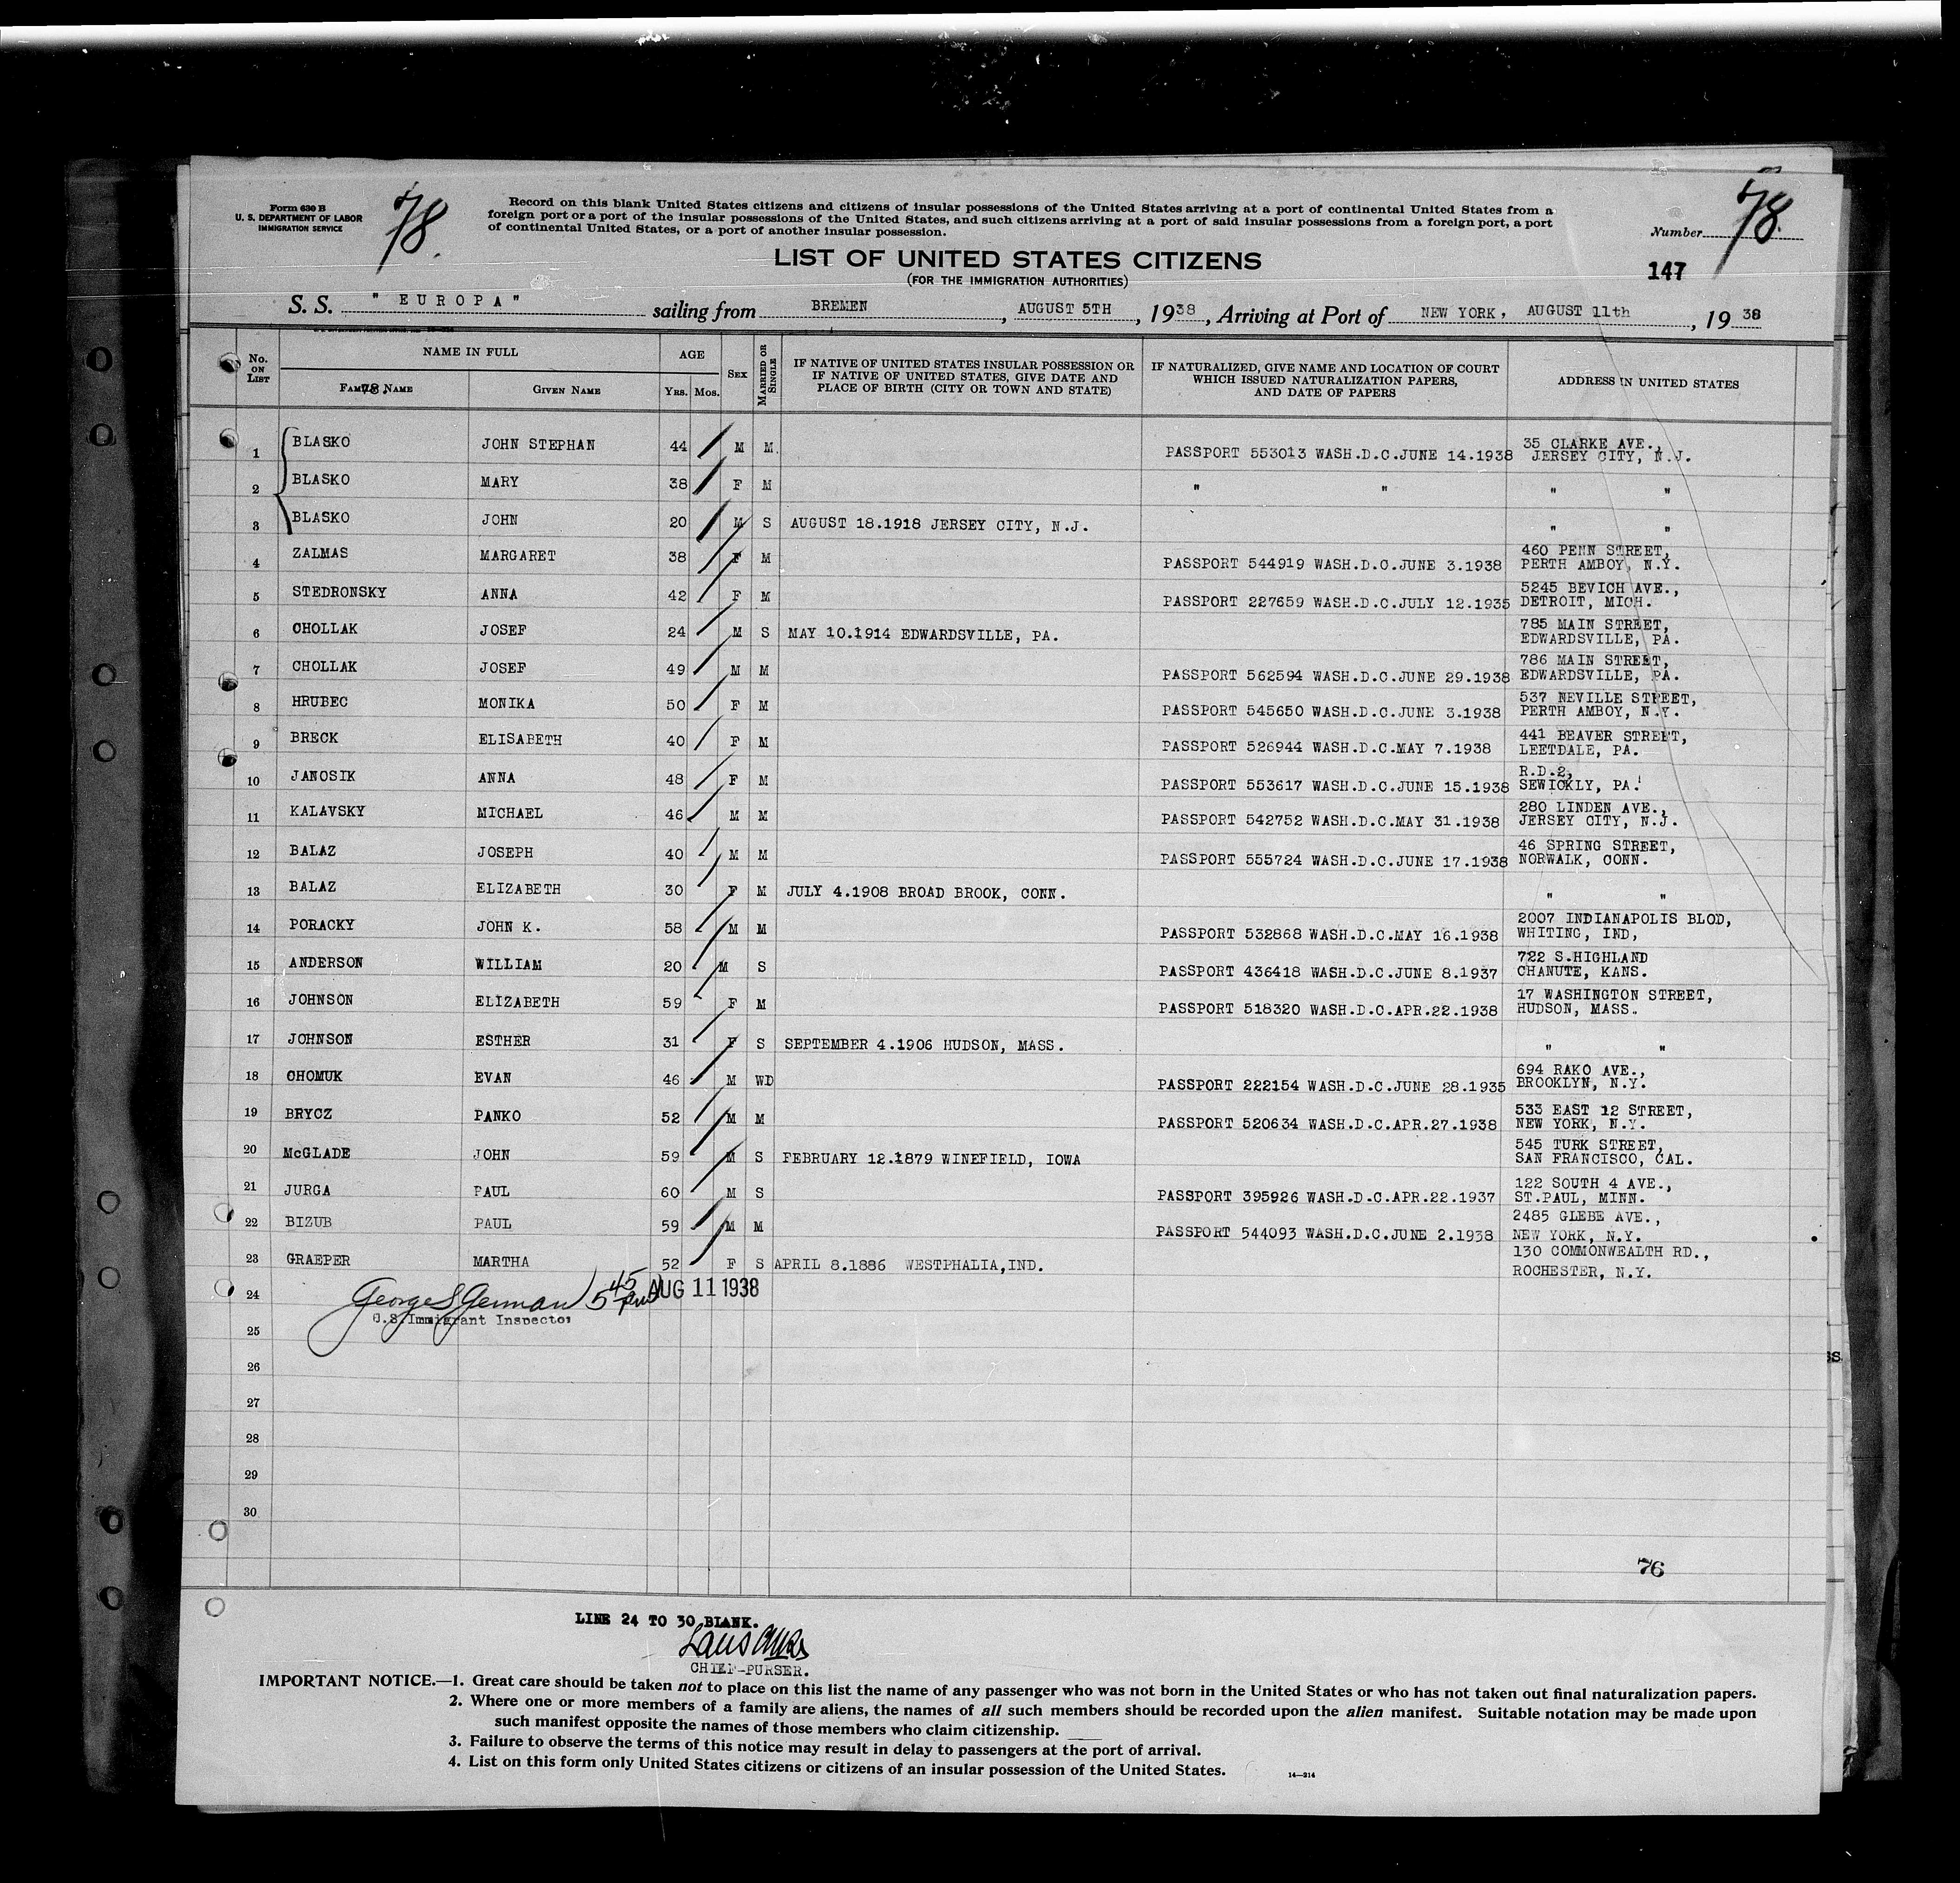 Form 630 B
U. S. DEPARTMENT OF LABOR
IMMIGRATION SERVICE
78.
Record on this blank United States citizens and citizens of insular possessions of the United States arriving at a port of continental United States from a
foreign port or a port of the insular possessions of the United States, and such citizens arriving at a port of said insular possessions from a foreign port, a port
of continental United States, or a port of another insular possession.
Number 78.
147
LIST OF UNITED STATES CITIZENS
(FOR THE IMMIGRATION AUTHORITIES)
S. S. "EUROPA" sailing from BREMEN, AUGUST 5TH, 1938, Arriving at Port of NEW YORK, AUGUST 11th, 1938
No. ON LIST NAME IN FULL AGE SEX MARRIED OR SINGLE IF NATIVE OF UNITED STATES INSULAR POSSESSION OR IF NATIVE OF UNITED STATES, GIVE DATE AND PLACE OF BIRTH (CITY OR TOWN AND STATE) IF NATURALIZED, GIVE NAME AND LOCATION OF COURT WHICH ISSUED NATURALIZATION PAPERS, AND DATE OF PAPERS ADDRESS IN UNITED STATES
FAMILY NAME 78. GIVEN NAME YRS. MOS.
1 BLASKO JOHN STEPHAN 44 M M. PASSPORT 553013 WASH.D.C.JUNE 14.1938 35 CLARKE AVE., JERSEY CITY, N.J.
2 BLASKO MARY 38 F M " " " "
3 BLASKO JOHN 20 M S AUGUST 18.1918 JERSEY CITY, N.J. " "
4 ZALMAS MARGARET 38 F M PASSPORT 544919 WASH.D.C.JUNE 3.1938 460 PENN STREET, PERTH AMBOY, N.Y.
5 STEDRONSKY ANNA 42 F M PASSPORT 227659 WASH.D.C.JULY 12.1935 5245 BEVICH AVE., DETROIT, MICH.
6 CHOLLAK JOSEF 24 M S MAY 10.1914 EDWARDSVILLE, PA. 785 MAIN STREET, EDWARDSVILLE, PA.
7 CHOLLAK JOSEF 49 M M PASSPORT 562594 WASH.D.C.JUNE 29.1938 786 MAIN STREET, EDWARDSVILLE, PA.
8 HRUBEC MONIKA 50 F M PASSPORT 545650 WASH.D.C.JUNE 3.1938 537 NEVILLE STREET, PERTH AMBOY, N.Y.
9 BRECK ELISABETH 40 F M PASSPORT 526944 WASH.D.C.MAY 7.1938 441 BEAVER STREET, LEETDALE, PA.
10 JANOSIK ANNA 48 F M PASSPORT 553617 WASH.D.C.JUNE 15.1938 R.D.2, SEWICKLY, PA.
11 KALAVSKY MICHAEL 46 M M PASSPORT 542752 WASH.D.C.MAY 31.1938 280 LINDEN AVE., JERSEY CITY, N.J.
12 BALAZ JOSEPH 40 M M PASSPORT 555724 WASH.D.C.JUNE 17.1938 46 SPRING STREET, NORWALK, CONN.
13 BALAZ ELIZABETH 30 F M JULY 4.1908 BROAD BROOK, CONN. " "
14 PORACKY JOHN K. 58 M M PASSPORT 532868 WASH.D.C.MAY 16.1938 2007 INDIANAPOLIS BLOD, WHITING, IND,
15 ANDERSON WILLIAM 20 M S PASSPORT 436418 WASH.D.C.JUNE 8.1937 722 S.HIGHLAND CHANUTE, KANS.
16 JOHNSON ELIZABETH 59 F M PASSPORT 518320 WASH.D.C.APR.22.1938 17 WASHINGTON STREET, HUDSON, MASS.
17 JOHNSON ESTHER 31 F S SEPTEMBER 4.1906 HUDSON, MASS. " "
18 CHOMUK EVAN 46 M WD PASSPORT 222154 WASH.D.C.JUNE 28.1935 694 RAKO AVE., BROOKLYN, N.Y.
19 BRYCZ PANKO 52 M M PASSPORT 520634 WASH.D.C.APR.27.1938 533 EAST 12 STREET, NEW YORK, N.Y.
20 McGLADE JOHN 59 M S FEBRUARY 12.1879 WINEFIELD, IOWA 545 TURK STREET, SAN FRANCISCO, CAL.
21 JURGA PAUL 60 M S PASSPORT 395926 WASH.D.C.APR.22.1937 122 SOUTH 4 AVE., ST.PAUL, MINN.
22 BIZUB PAUL 59 M M PASSPORT 544093 WASH.D.C.JUNE 2.1938 2485 GLEBE AVE., NEW YORK, N.Y.
23 GRAEPER MARTHA 52 F S APRIL 8.1886 WESTPHALIA,IND. 130 COMMONWEALTH RD., ROCHESTER, N.Y.
24 George S German 5 45 pm AUG 11 1938
U.S.Immigrant Inspector
25
26
27
28
29
30
76
LINE 24 TO 30 BLANK.
CHIEF-PURSER.
IMPORTANT NOTICE.—1. Great care should be taken not to place on this list the name of any passenger who was not born in the United States or who has not taken out final naturalization papers.
2. Where one or more members of a family are aliens, the names of all such members should be recorded upon the alien manifest. Suitable notation may be made upon
such manifest opposite the names of those members who claim citizenship.
3. Failure to observe the terms of this notice may result in delay to passengers at the port of arrival.
4. List on this form only United States citizens or citizens of an insular possession of the United States.
14—214